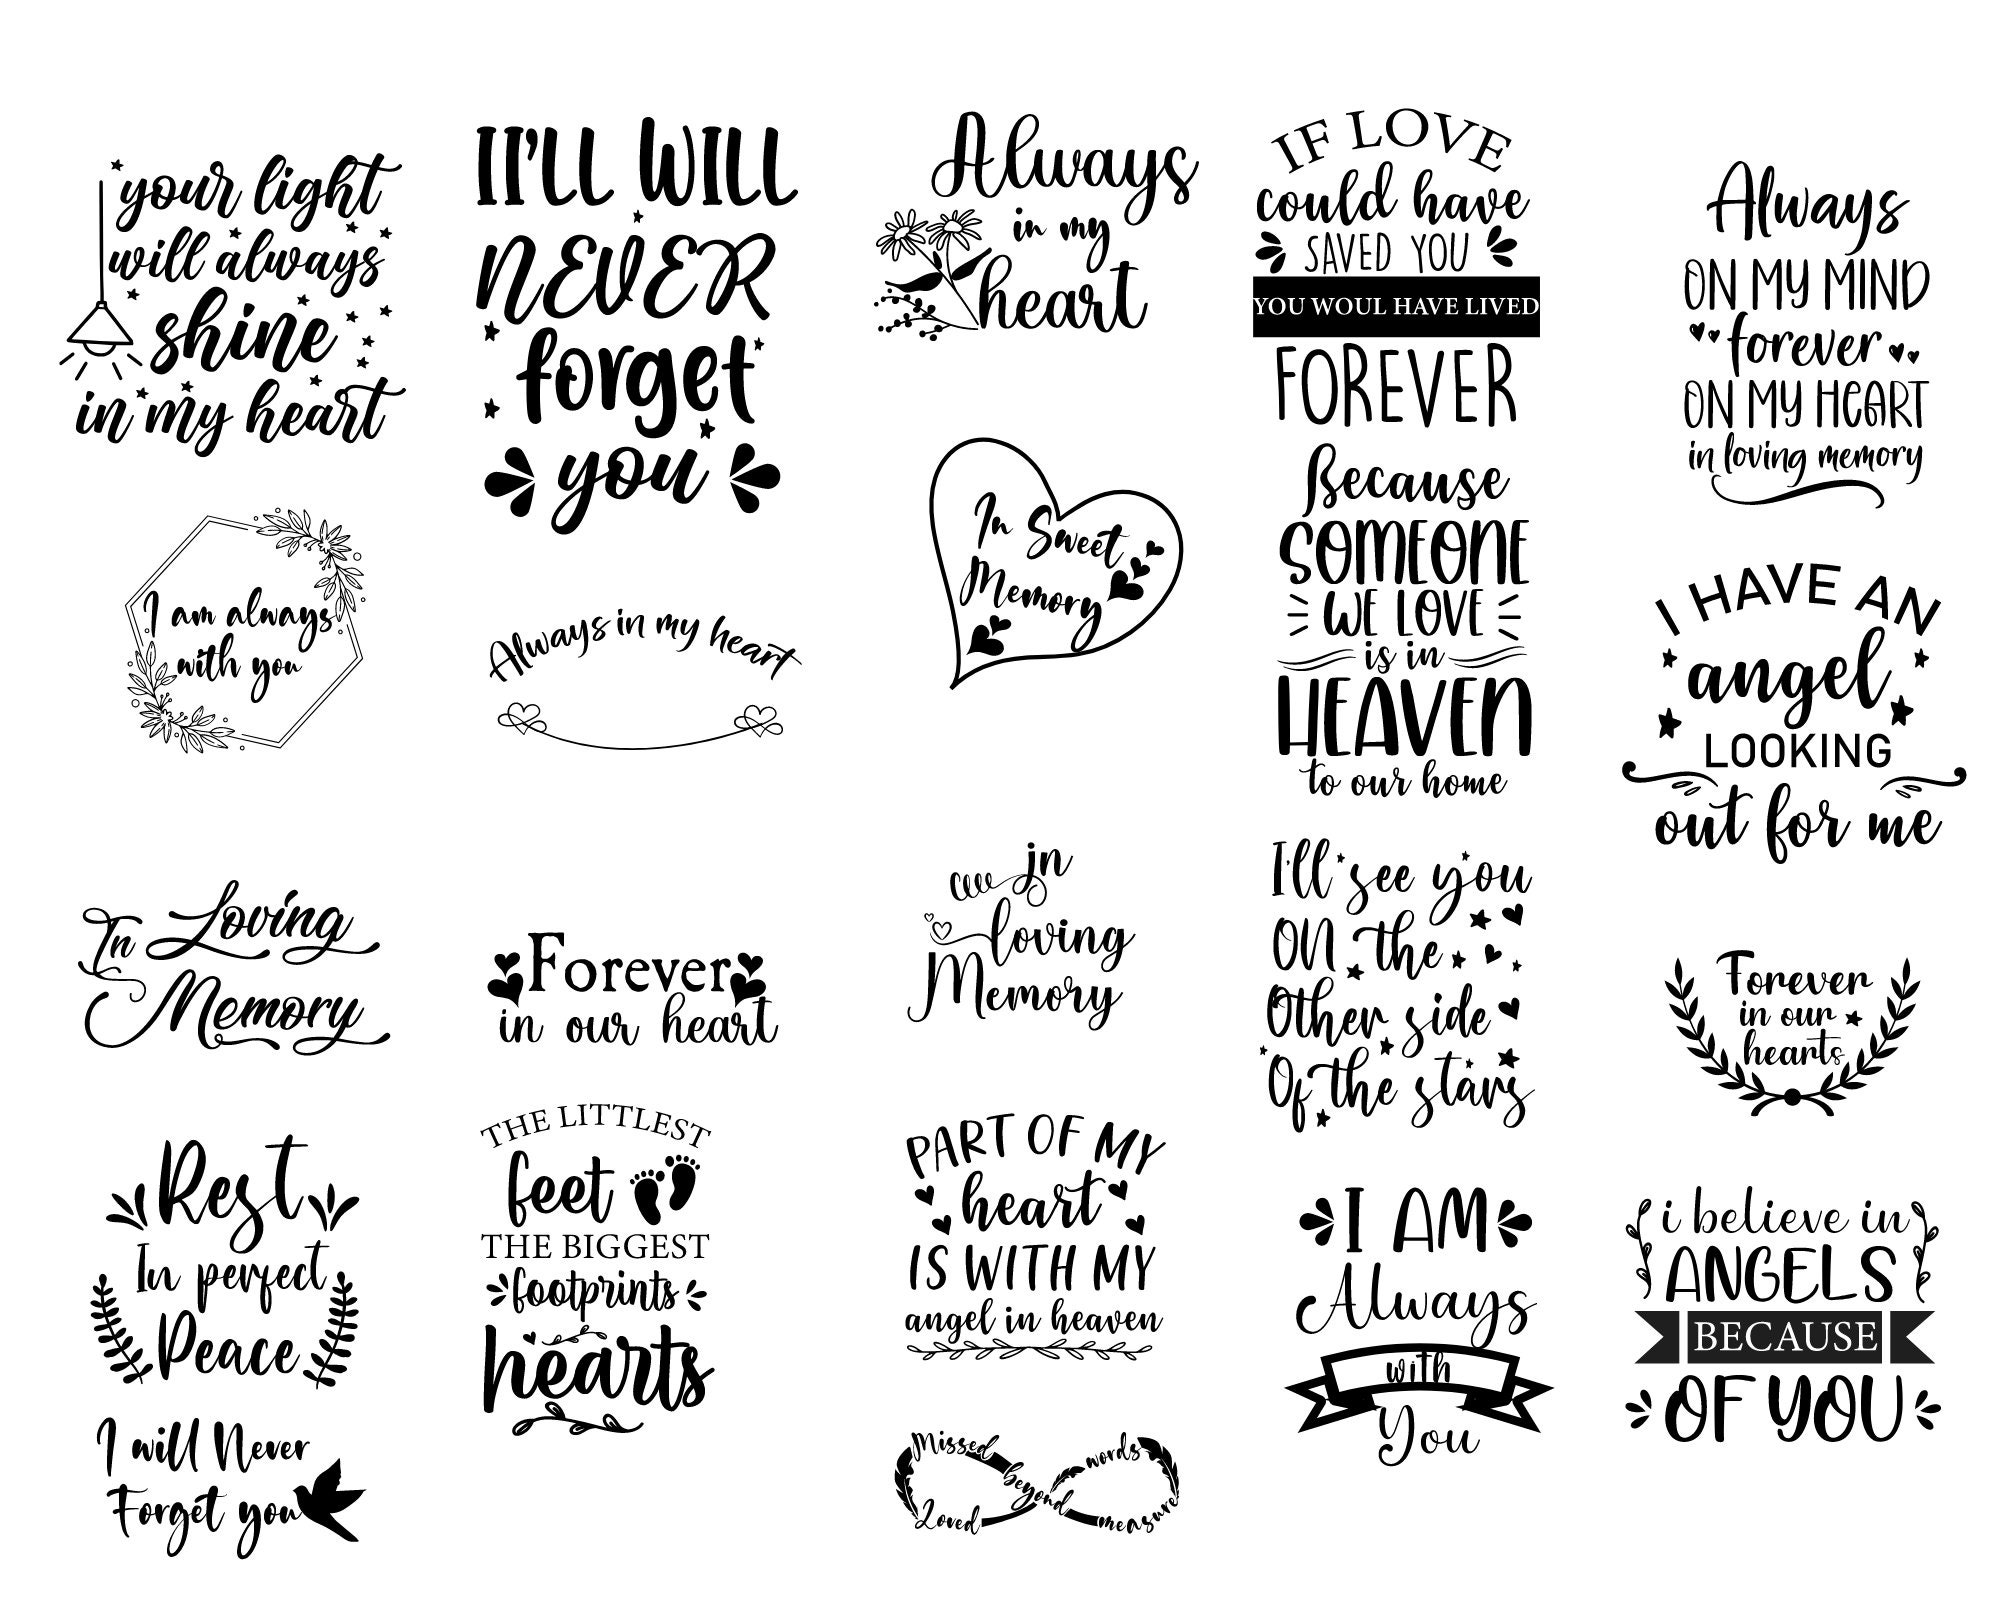 your light
will always
shine
in my heart
I am always
with you
In Loving
Memory
Rest
In perfect
Peace
I will Never
Forget you
II'LL WILL
NEVER
forget
you
Always in my heart
Forever
in our heart
THE LITTLEST
feet
THE BIGGEST
footprints
hearts
Always
in my
heart
In Sweet
Memory
in
loving
Memory
PART OF MY
heart
IS WITH MY
angel in heaven
Missed beyond words
Loved beyond measure
IF LOVE
could have
SAVED YOU
YOU WOUL HAVE LIVED
FOREVER
Because
SOMEONE
WE LOVE
is in
HEAVEN
to our home
I'll see you
ON the
Other side
Of the stars
I AM
Always
with
You
Always
ON MY MIND
forever
ON MY HEART
in loving memory
I HAVE AN
angel
LOOKING
out for me
Forever
in our
hearts
i believe in
ANGELS
BECAUSE
OF YOU